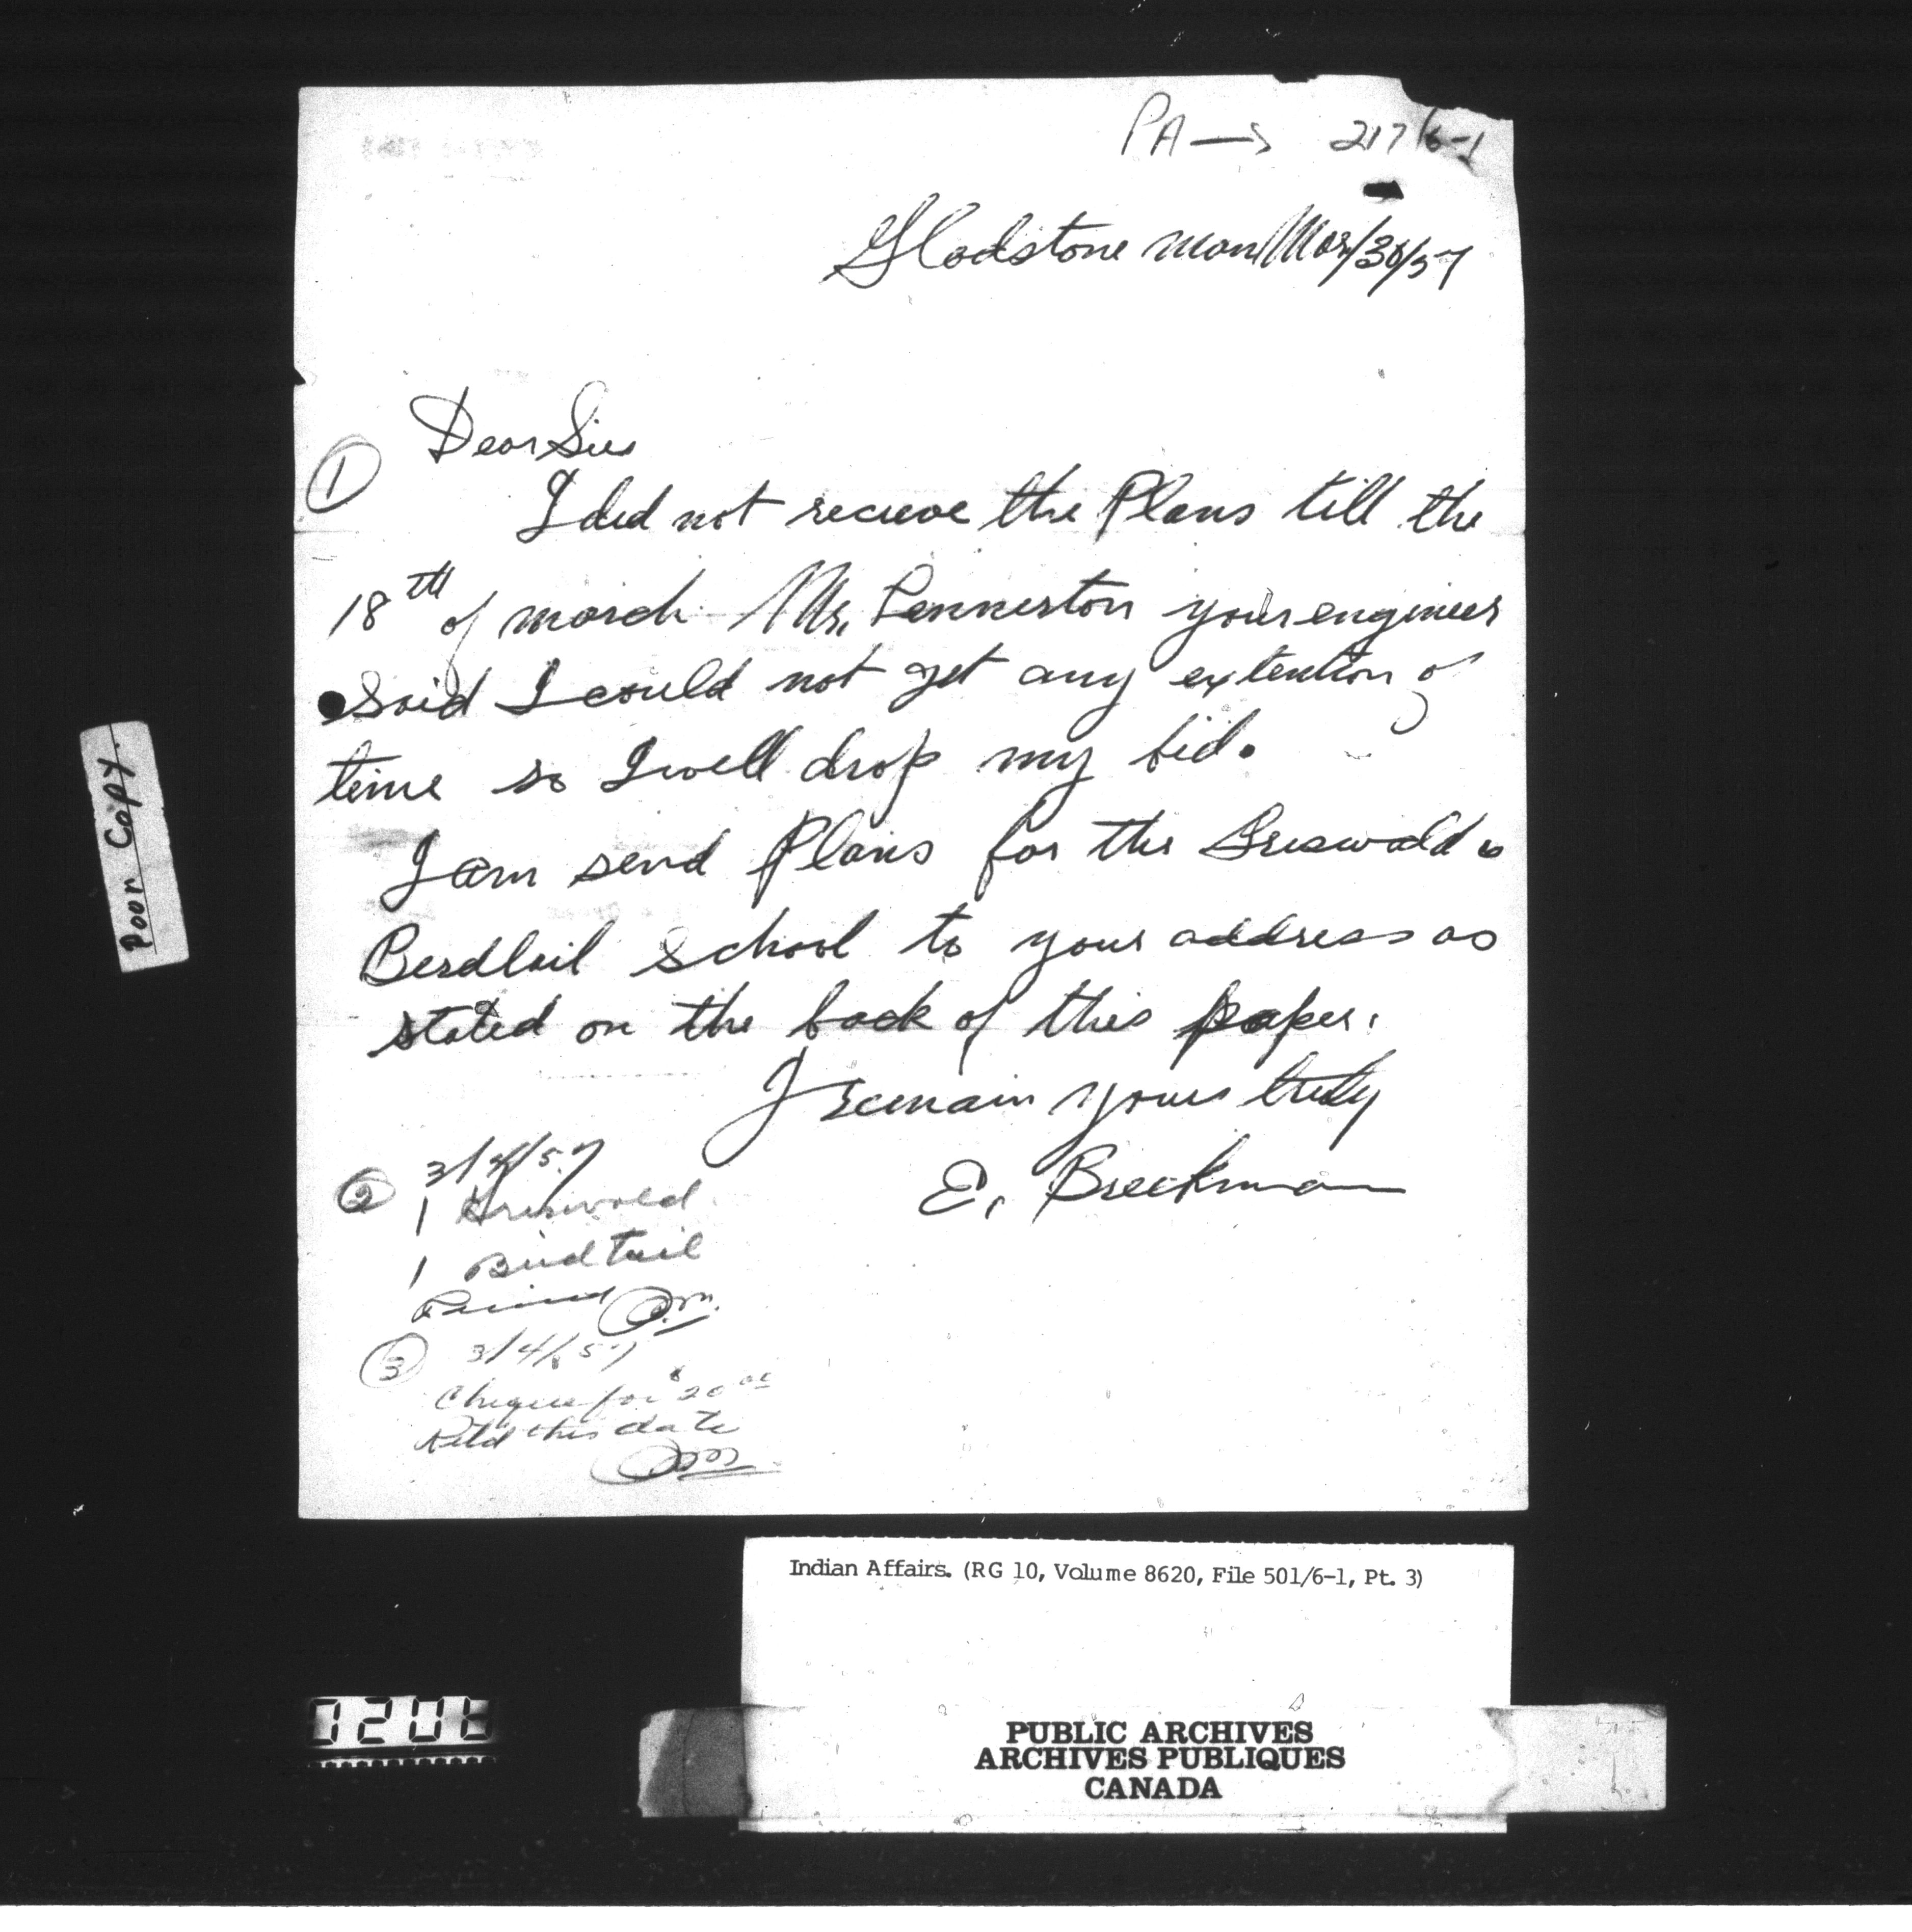 PA → 217 6-1
Gladstone Man Mar/30/57
Dear Sir
①
I did not recieve the Plans till the
18th of march Mr. Pennerston your engineer
Said I could not get any extention of
time so I will drop my bid.
I am send Plans for the Griswald &
Berdtail School to your address as
stated on the back of this paper.
I remain yours truly
E. Breckman
② 3/4/57
1 Griswold
1 Birdtail
③ 3/4/57
Cheque for $20 00
Retd this date
Poor Copy.
Indian Affairs. (RG 10, Volume 8620, File 501/6-1, Pt. 3)
PUBLIC ARCHIVES
ARCHIVES PUBLIQUES
CANADA